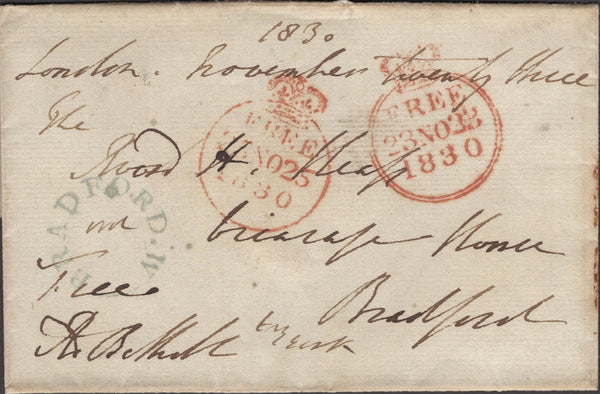 1830
London. November twenty three
The
Revd H. Heap
Vicarage House
Bradford
Free
Yorks
FREE
23 NO 23
1830
FREE
23 NO 23
1830
BRADFORD.Y